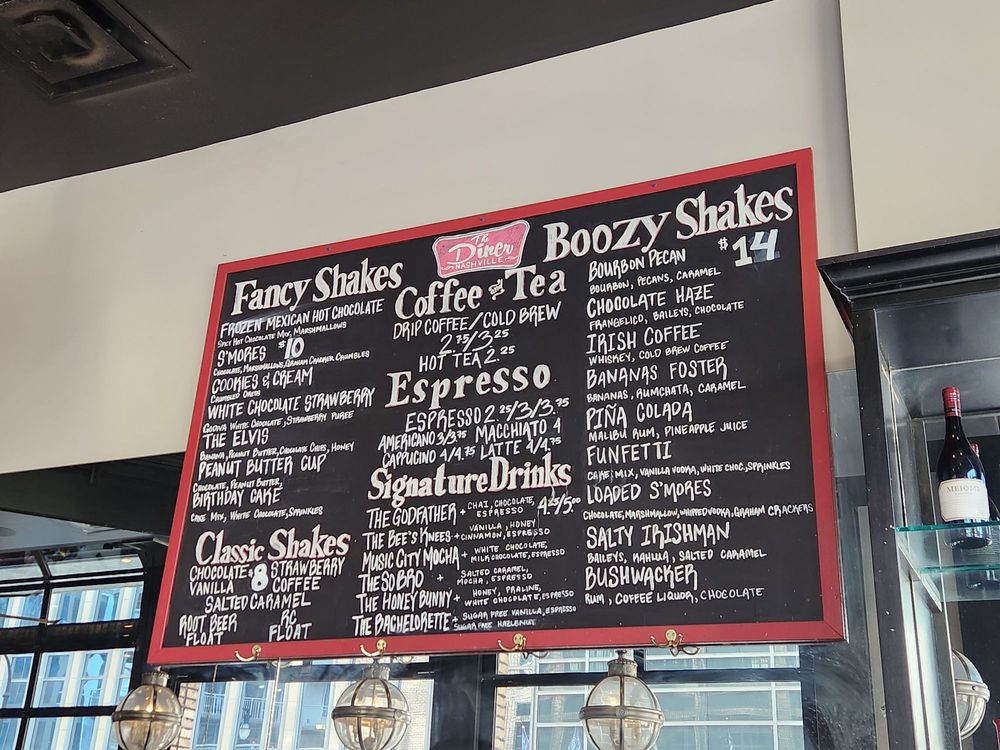 The
Diner
NASHVILLE
Fancy Shakes
FROZEN MEXICAN HOT CHOCOLATE
SPICY HOT CHOCOLATE MIX, MARSHMALLOWS
S'MORES $10
CHOCOLATE, MARSHMALLOWS, GRAHAM CRACKER CRUMBLES
COOKIES & CREAM
CRUMBLED OREOS
WHITE CHOCOLATE STRAWBERRY
GODIVA WHITE CHOCOLATE, STRAWBERRY PUREE
THE ELVIS
BANANA, PEANUT BUTTER, CHOCOLATE CHIPS, HONEY
PEANUT BUTTER CUP
CHOCOLATE, PEANUT BUTTER,
BIRTHDAY CAKE
CAKE MIX, WHITE CHOCOLATE, SPRINKLES
Classic Shakes
CHOCOLATE $8 STRAWBERRY
VANILLA COFFEE
SALTED CARAMEL
ROOT BEER FLOAT
RC FLOAT
Coffee and Tea
DRIP COFFEE/COLD BREW
2.75/3.25
HOT TEA 2.25
Espresso
ESPRESSO 2.25/3/3.75
AMERICANO 3/3.75 MACCHIATO 4
CAPPUCINO 4/4.75 LATTE 4/4.75
Signature Drinks
4.25/5.00
THE GODFATHER + CHAI, CHOCOLATE, ESPRESSO
THE BEE'S KNEES + VANILLA, HONEY CINNAMON, ESPRESSO
MUSIC CITY MOCHA + WHITE CHOCOLATE, MILK CHOCOLATE, ESPRESSO
THE SOBRO + SALTED CARAMEL, MOCHA, ESPRESSO
THE HONEY BUNNY + HONEY, PRALINE, WHITE CHOCOLATE, ESPRESSO
THE BACHELORETTE + SUGAR FREE VANILLA, ESPRESSO SUGAR FREE HAZELNUT
Boozy Shakes
$14
BOURBON PECAN
BOURBON, PECANS, CARAMEL
CHOCOLATE HAZE
FRANGELICO, BAILEYS, CHOCOLATE
IRISH COFFEE
WHISKEY, COLD BREW COFFEE
BANANAS FOSTER
BANANAS, RUMCHATA, CARAMEL
PIÑA COLADA
MALIBU RUM, PINEAPPLE JUICE
FUNFETTI
CAKE MIX, VANILLA VODKA, WHITE CHOC, SPRINKLES
LOADED S'MORES
CHOCOLATE, MARSHMALLOW, WHIPPED VODKA, GRAHAM CRACKERS
SALTY IRISHMAN
BAILEYS, KAHLUA, SALTED CARAMEL
BUSHWACKER
RUM, COFFEE LIQUOR, CHOCOLATE
MEIOMI